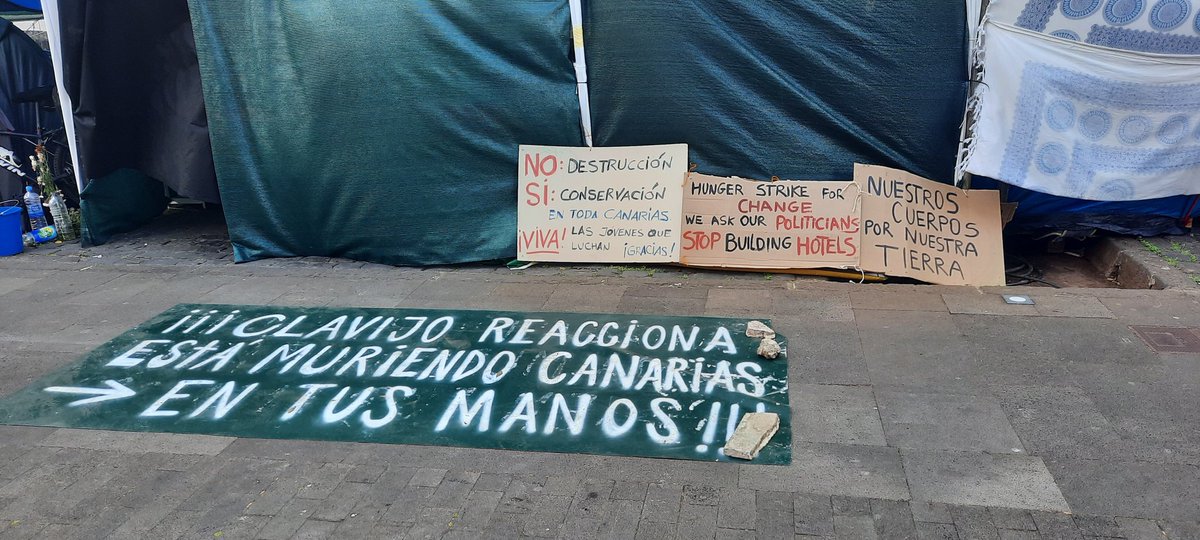 NO: DESTRUCCIÓN
SI: CONSERVACIÓN
EN TODA CANARIAS
¡VIVA! LAS JOVENES QUE
LUCHAN ¡GRACIAS!
HUNGER STRIKE FOR
CHANGE
WE ASK OUR POLITICIANS
STOP BUILDING HOTELS
NUESTROS
CUERPOS
POR NUESTRA
TIERRA
¡¡¡CLAVIJO REACCIONA
ESTÁ MURIENDO CANARIAS
→ EN TUS MANOS!!!